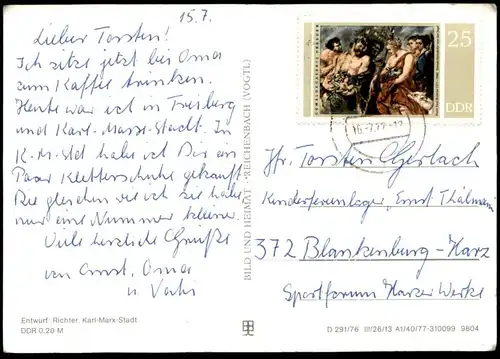 15.7.
Lieber Torsten!
Ich sitze jetzt bei Oma
zum Kaffee trinken.
Heute war ich in Freiberg
und Karl-Marx-Stadt. In
K.-M.-Std habe ich Dir ein
Paar Kletterschuhe gekauft.
Die gleichen wie ich sie habe
nur eine Nummer kleiner.
Viele herzliche Grüße
von Ernst, Oma
u.
Entwurf: Richter, Karl-Marx-Stadt
DDR 0,20 M
BILD UND HEIMAT REICHENBACH (VOGTL)
25
DDR
16.-7.77-12
Torsten Gerlach
Kinderferienlager „Ernst Thälmann
372 Blankenburg-Harz
Sportforum Harzer Werke
D 291/76 III/26/13 A1/40/77-310099 9804